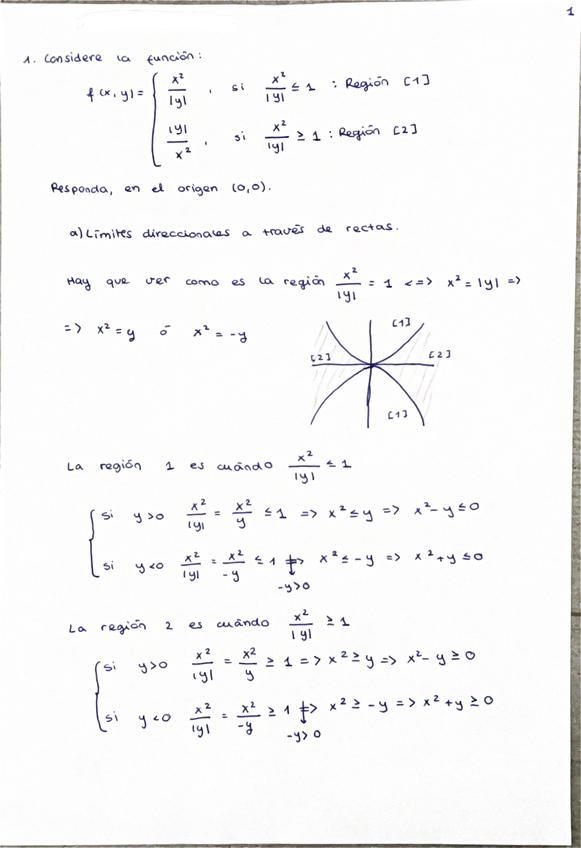 1
1. Considere la función:
f(x,y) = { x²/|y| , si x²/|y| ≤ 1 : Región [1]
|y|/x² , si x²/|y| ≥ 1 : Región [2]
Responda, en el origen (0,0).
a) Límites direccionales a través de rectas.
Hay que ver como es la región x²/|y| = 1 <=> x² = |y| =>
=> x² = y ó x² = -y
[1]
[2] [2]
[1]
La región 1 es cuándo x²/|y| ≤ 1
{ si y>0 x²/|y| = x²/y ≤ 1 => x² ≤ y => x² - y ≤ 0
si y<0 x²/|y| = x²/-y ≤ 1 => x² ≤ -y => x² + y ≤ 0
-y>0
La región 2 es cuándo x²/|y| ≥ 1
{ si y>0 x²/|y| = x²/y ≥ 1 => x² ≥ y => x² - y ≥ 0
si y<0 x²/|y| = x²/-y ≥ 1 => x² ≥ -y => x² + y ≥ 0
-y>0